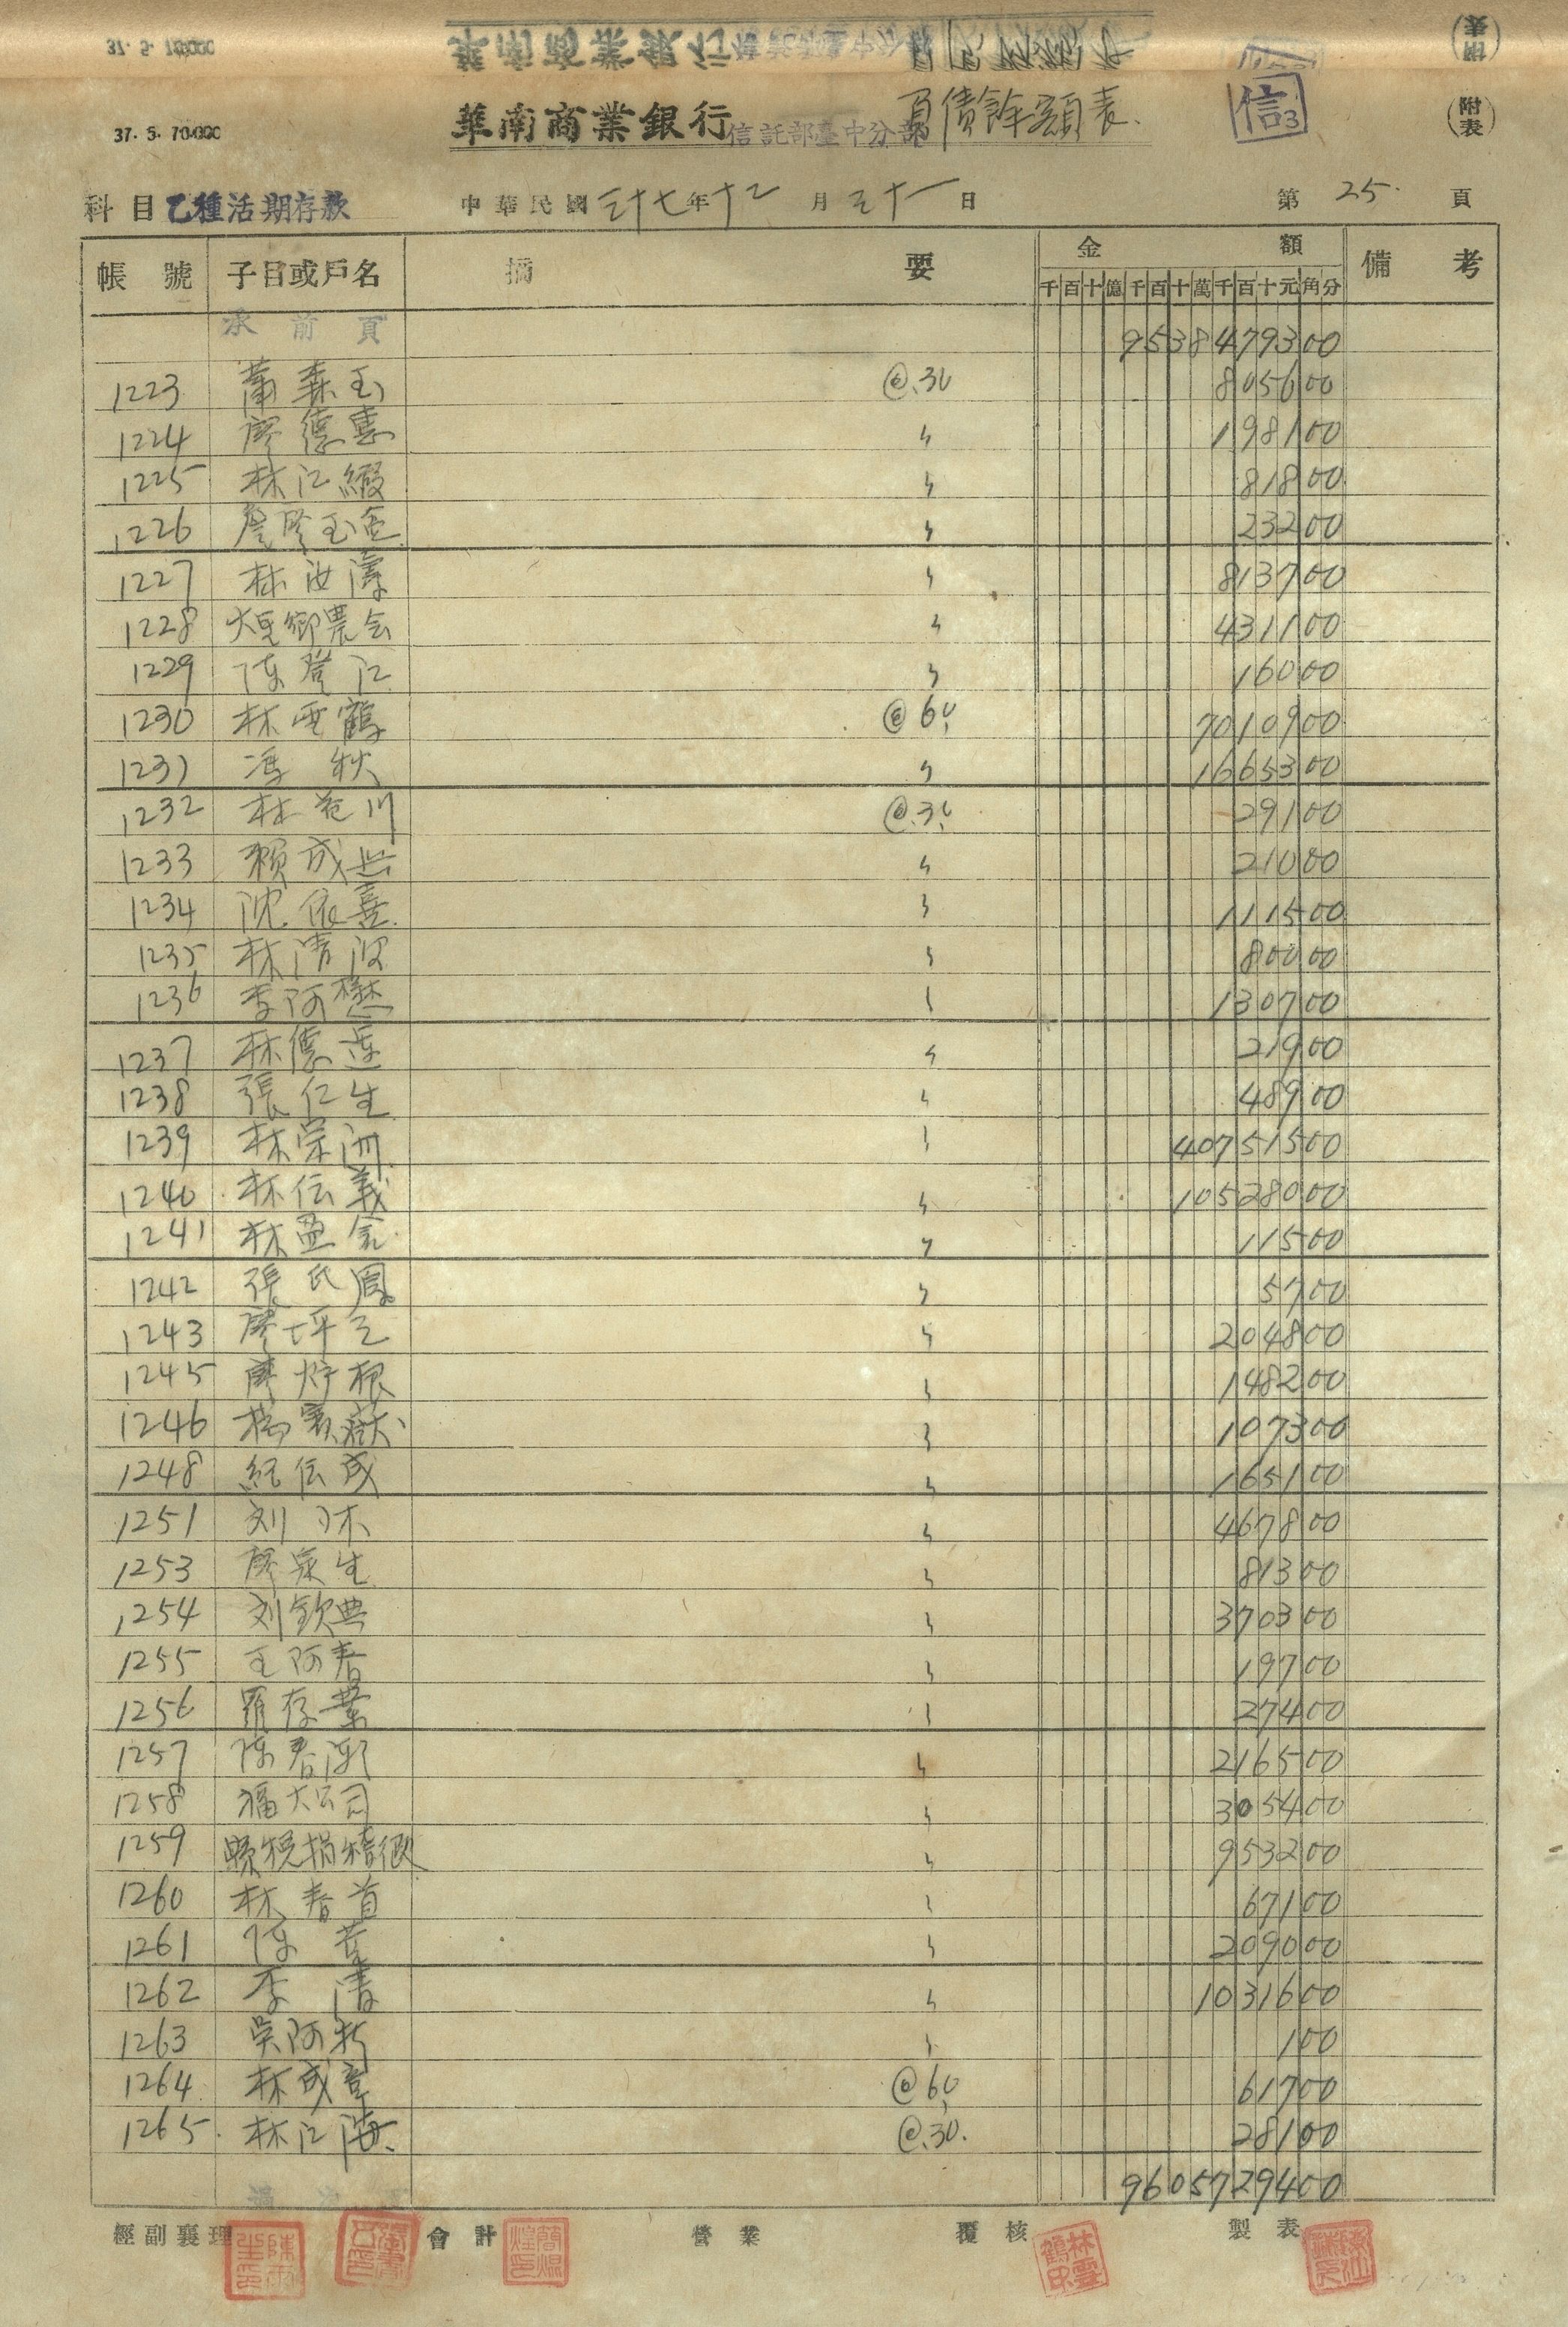 37. 5. 70.000
華南商業銀行信託部臺中分部負債餘額表
信3
(附表)
科目 乙種活期存款 中華民國 三十七年 十二月 三十一日 第 25 頁
帳號 子目或戶名 摘要 金額 備考
千百十億千百十萬千百十元角分
承前頁 9538479300
1223 蕭森玉 @.30 805600
1224 廖德惠 〃 198100
1225 林江綴 〃 81800
1226 詹廖玉 〃 23200
1227 林汝濤 〃 813700
1228 大里鄉農会 〃 431100
1229 陳登江 〃 16000
1230 林雲鶴 @60 7010900
1231 馮秋 〃 1665300
1232 林 川 @.30 29100
1233 賴成 〃 21000
1234 沈依喜 〃 111500
1235 林清波 〃 80000
1236 李阿 〃 130700
1237 林德蓮 〃 21900
1238 張仁生 〃 48900
1239 林荣洲 〃 40751500
1240 林伝義 〃 10528000
1241 林盈 〃 11500
1242 張氏鳳 〃 5700
1243 廖坪 〃 204800
1245 廖 根 〃 148200
1246 楊 〃 107300
1248 紀伝成 〃 165100
1251 刘 木 〃 467800
1253 廖泉生 〃 81300
1254 刘欽典 〃 370300
1255 王阿春 〃 19700
1256 羅存業 〃 27400
1257 陳春 〃 216500
1258 福大公司 〃 305400
1259 縣稅捐稽徵 〃 953200
1260 林春首 〃 67100
1261 陳 〃 209000
1262 李清 〃 1031600
1263 吳阿 〃 100
1264 林成章 @60 61700
1265 林江海 @.30. 28100
9605729400
經副襄理 會計 營業 覆核 製表
林雲鶴印